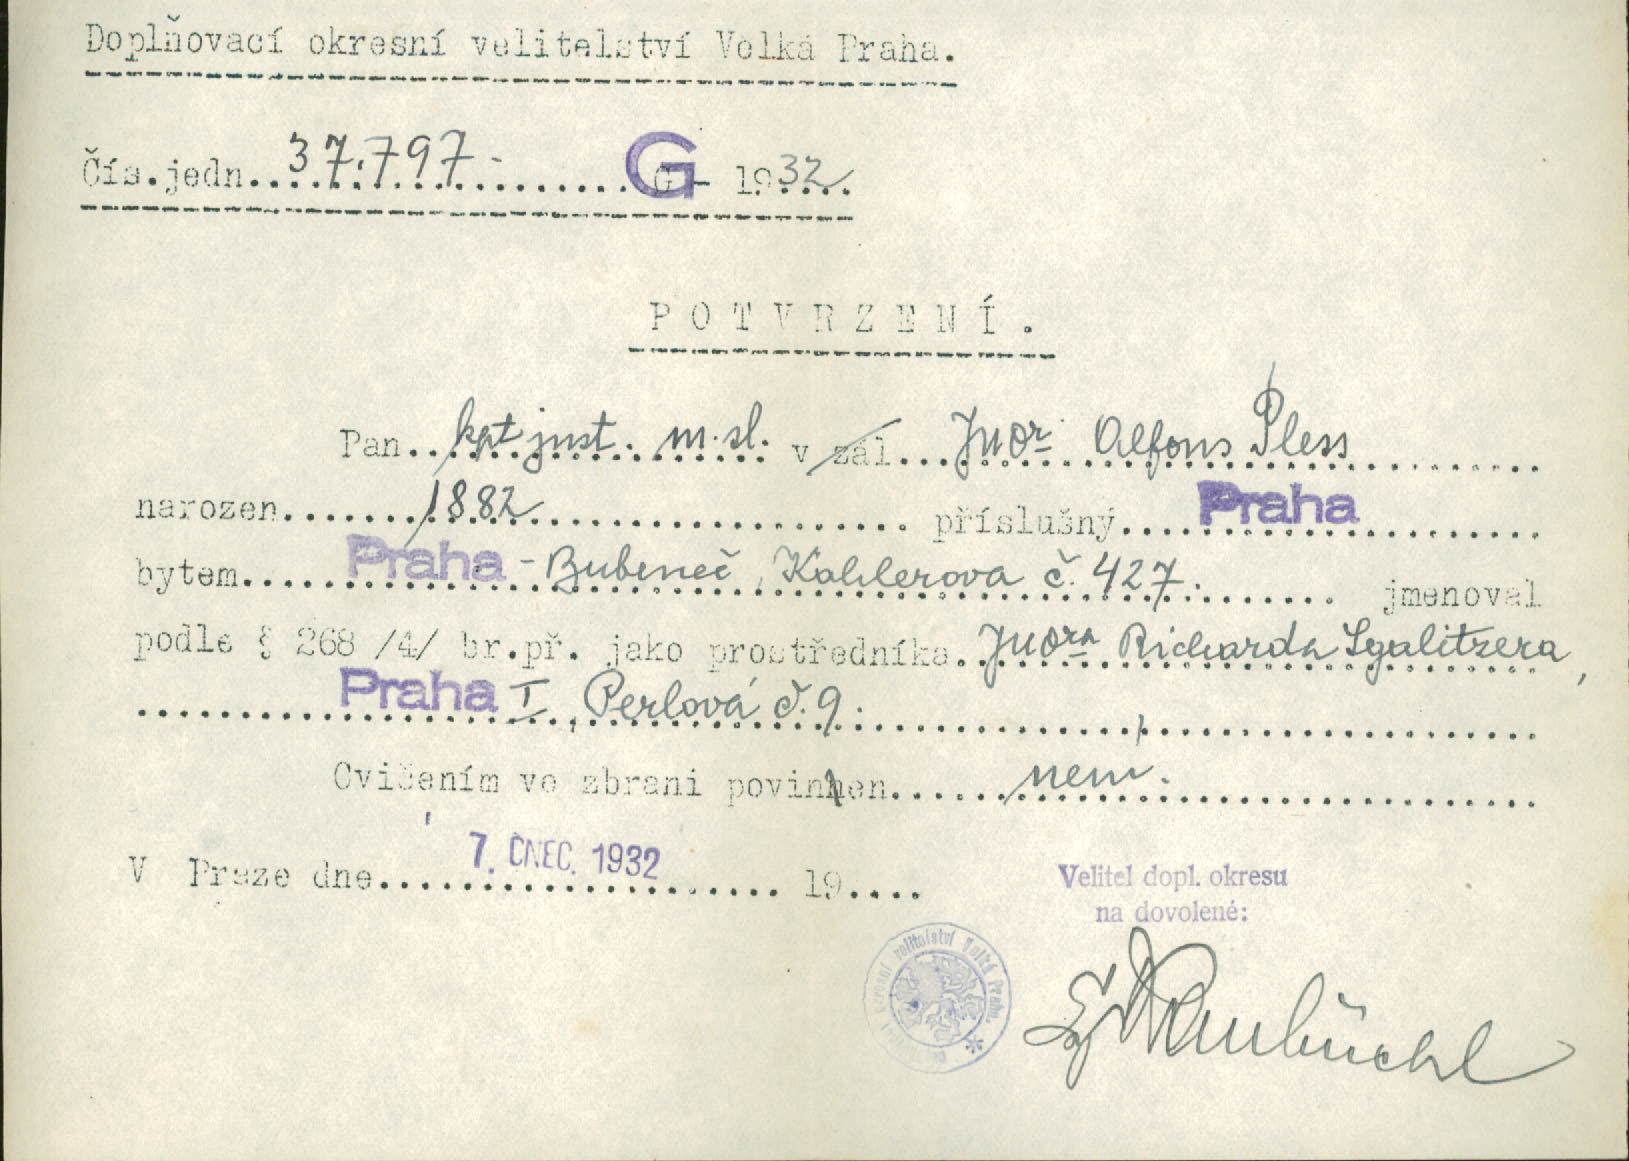 Doplňovací okresní velitelství Velká Praha.
Čís.jedn. 37.797- G - 1932.
POTVRZENÍ.
Pan kpt just. m. sl. v zál. Judr Alfons Pless
narozen 1882 příslušný Praha
bytem Praha - Bubeneč, Kahlerova č. 427. jmenoval
podle § 268 /4/ br.př. jako prostředníka Judra Richarda Sgalitzera,
Praha I, Perlová č. 9.
Cvičením ve zbrani povinnen nem.
V Praze dne 7. ČNEC. 1932 19
Velitel dopl. okresu
na dovolené:
okresní velitelství Velká Praha.